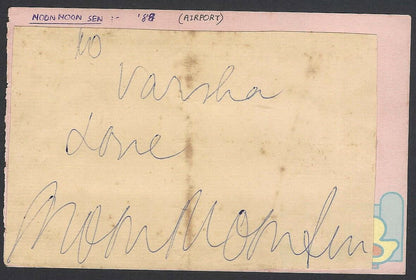 MOON MOON SEN :- '88 (AIRPORT)
to
Varsha
Love
Moon Moon Sen